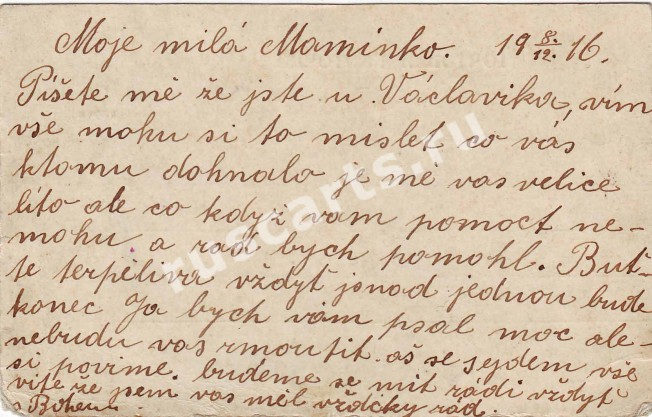 Moje milá Maminko. 19 8./12. 16.
Píšete mě že jste u Václavika, vím
vše mohu si to mislet co vás
ktomu dohnalo je mě vas velice
líto ale co když vam pomoct ne-
mohu a rad bych pomohl. Buť-
te terpěliva vždyť jsnad jednou bude
konec Ja bych vám psal moc ale-
nebudu vas rmoutit. aš se sejdem vše
si povime. budeme se mit rádi vždyť
víte že jsem vas měl vždicky rád.
s Bohem
ruscarts.ru